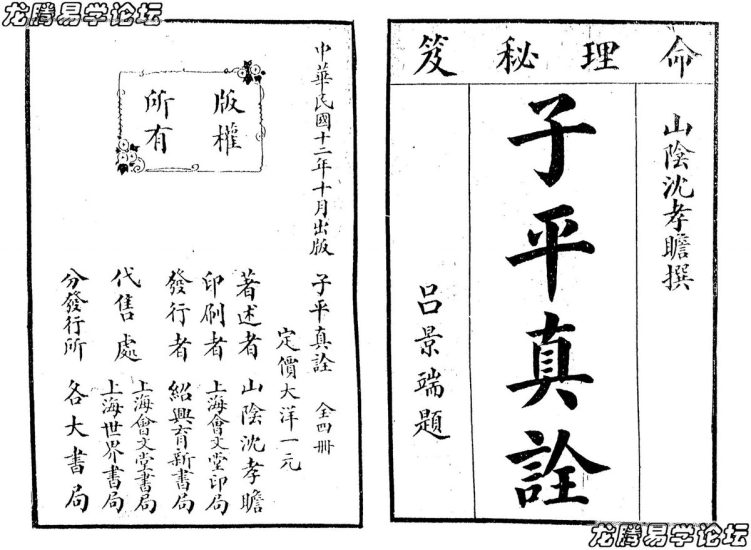 龙腾易学论坛
命理秘笈
山陰沈孝瞻撰
子平真詮
呂景端題
中華民國十二年十月出版
子平真詮 全四冊
定價大洋一元
版權
所有
著述者 山陰沈孝瞻
印刷者 上海會文堂印局
發行者 紹興育新書局
代售處 上海會文堂書局
上海世界書局
分發行所 各大書局
龙腾易学论坛